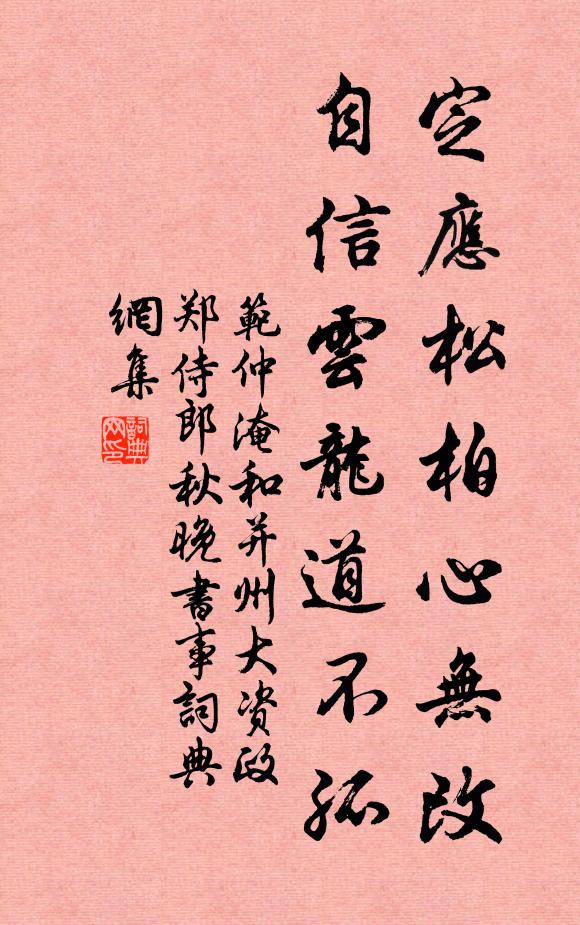 定應松柏心無改
自信雲龍道不孤
範仲淹和并州大资政
郑侍郎秋晚書事詞典
網集
詞典
网印